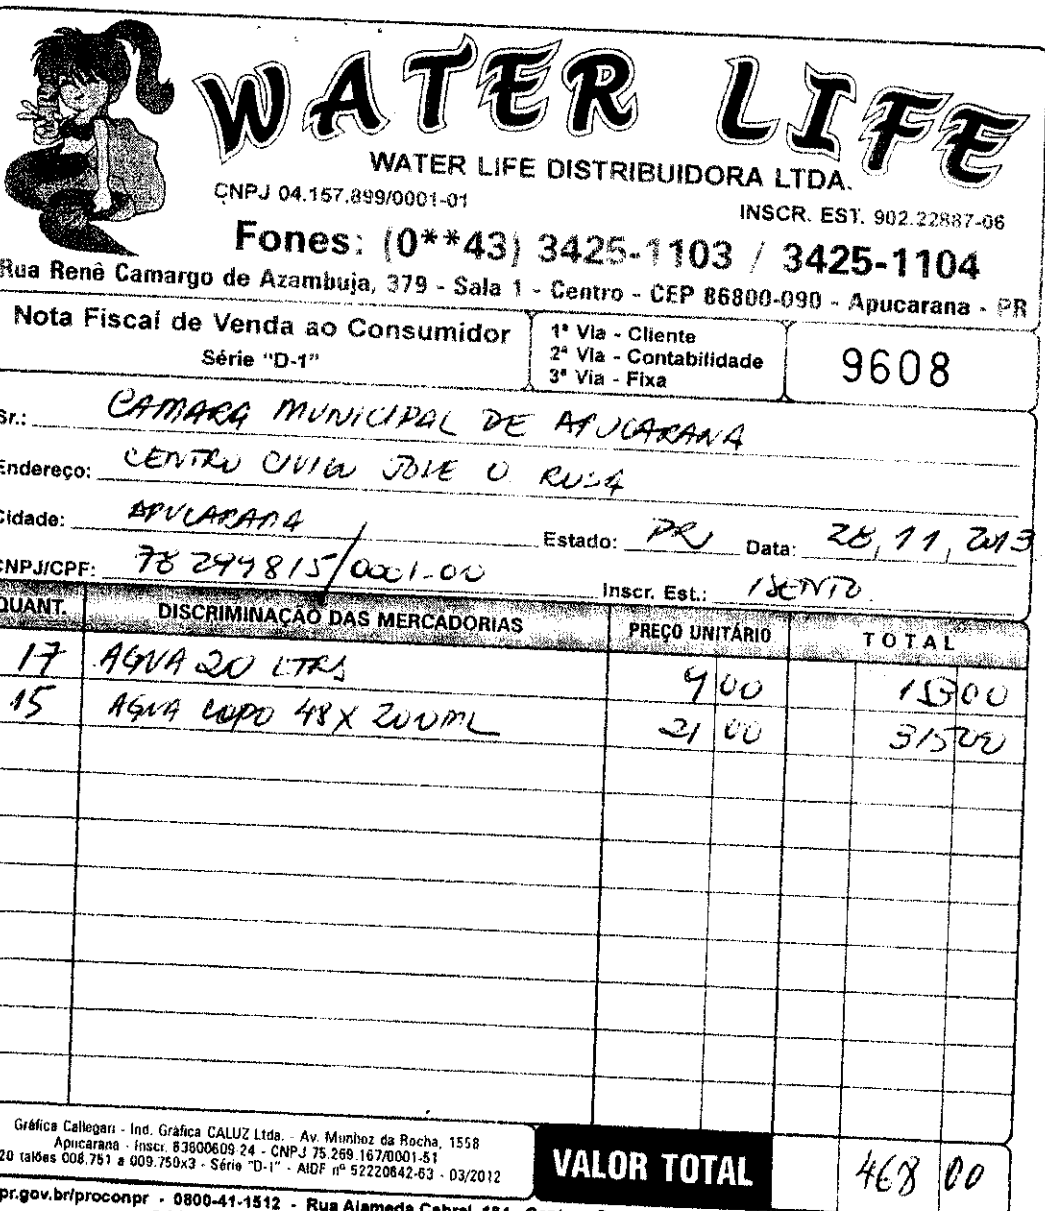 WATER LIFE
WATER LIFE DISTRIBUIDORA LTDA.
CNPJ 04.157.899/0001-01 INSCR. EST. 902.22887-06
Fones: (0**43) 3425-1103 / 3425-1104
Rua Renê Camargo de Azambuja, 379 - Sala 1 - Centro - CEP 86800-090 - Apucarana - PR
Nota Fiscal de Venda ao Consumidor
Série "D-1"
1ª Via - Cliente
2ª Via - Contabilidade
3ª Via - Fixa
9608
Sr.: CAMARA MUNICIPAL DE APUCARANA
Endereço: CENTRO CIVICO JOSE O ROSA
Cidade: APUCARANA Estado: PR Data: 28, 11, 2013
CNPJ/CPF: 78 299 815/0001-00 Inscr. Est.: ISENTO
QUANT. DISCRIMINAÇÃO DAS MERCADORIAS PREÇO UNITÁRIO TOTAL
17 AGUA 20 LTRS 9 00 153 00
15 AGUA COPO 48 X 200ML 21 00 315 00
Gráfica Callegari - Ind. Gráfica CALUZ Ltda. - Av. Munhoz da Rocha, 1558
Apucarana - Inscr. 63600609-24 - CNPJ 75.269.167/0001-51
20 talões 008.751 a 009.750x3 - Série "D-1" - AIDF nº 52220642-63 - 03/2012
VALOR TOTAL 468 00
pr.gov.br/proconpr - 0800-41-1512 - Rua Alameda Cabral